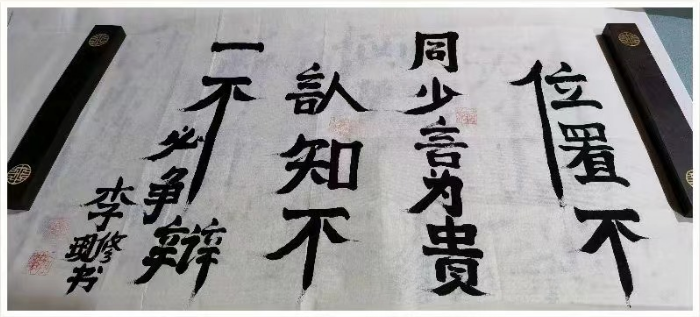 位置不
同少言为貴
认知不
一不必争辩
李修現书